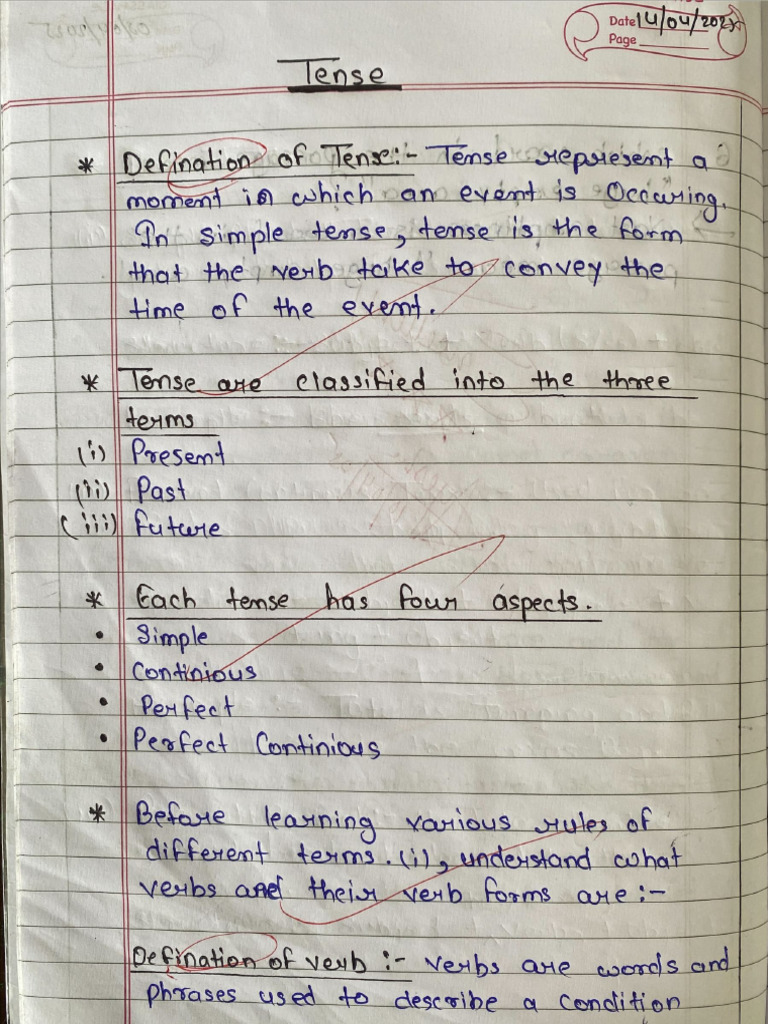 Date 14/04/202
Page
Tense
* Defination of Tense:- Tense represent a
moment in which an event is Occuring.
In simple tense, tense is the form
that the verb take to convey the
time of the event.
* Tense are classified into the three
terms
(i) Present
(ii) Past
(iii) future
* Each tense has four aspects.
• Simple
• Continious
• Perfect
• Perfect Continious
* Before learning various rules of
different terms. (i), understand what
verbs and their verb forms are:-
Defination of verb :- verbs are words and
phrases used to describe a condition